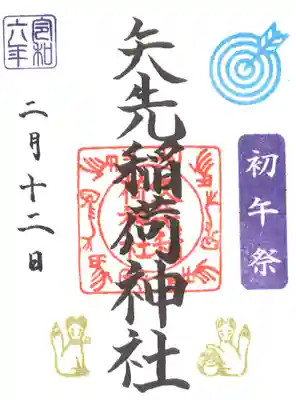 初午祭
矢先稲荷神社
令和六年
二月十二日